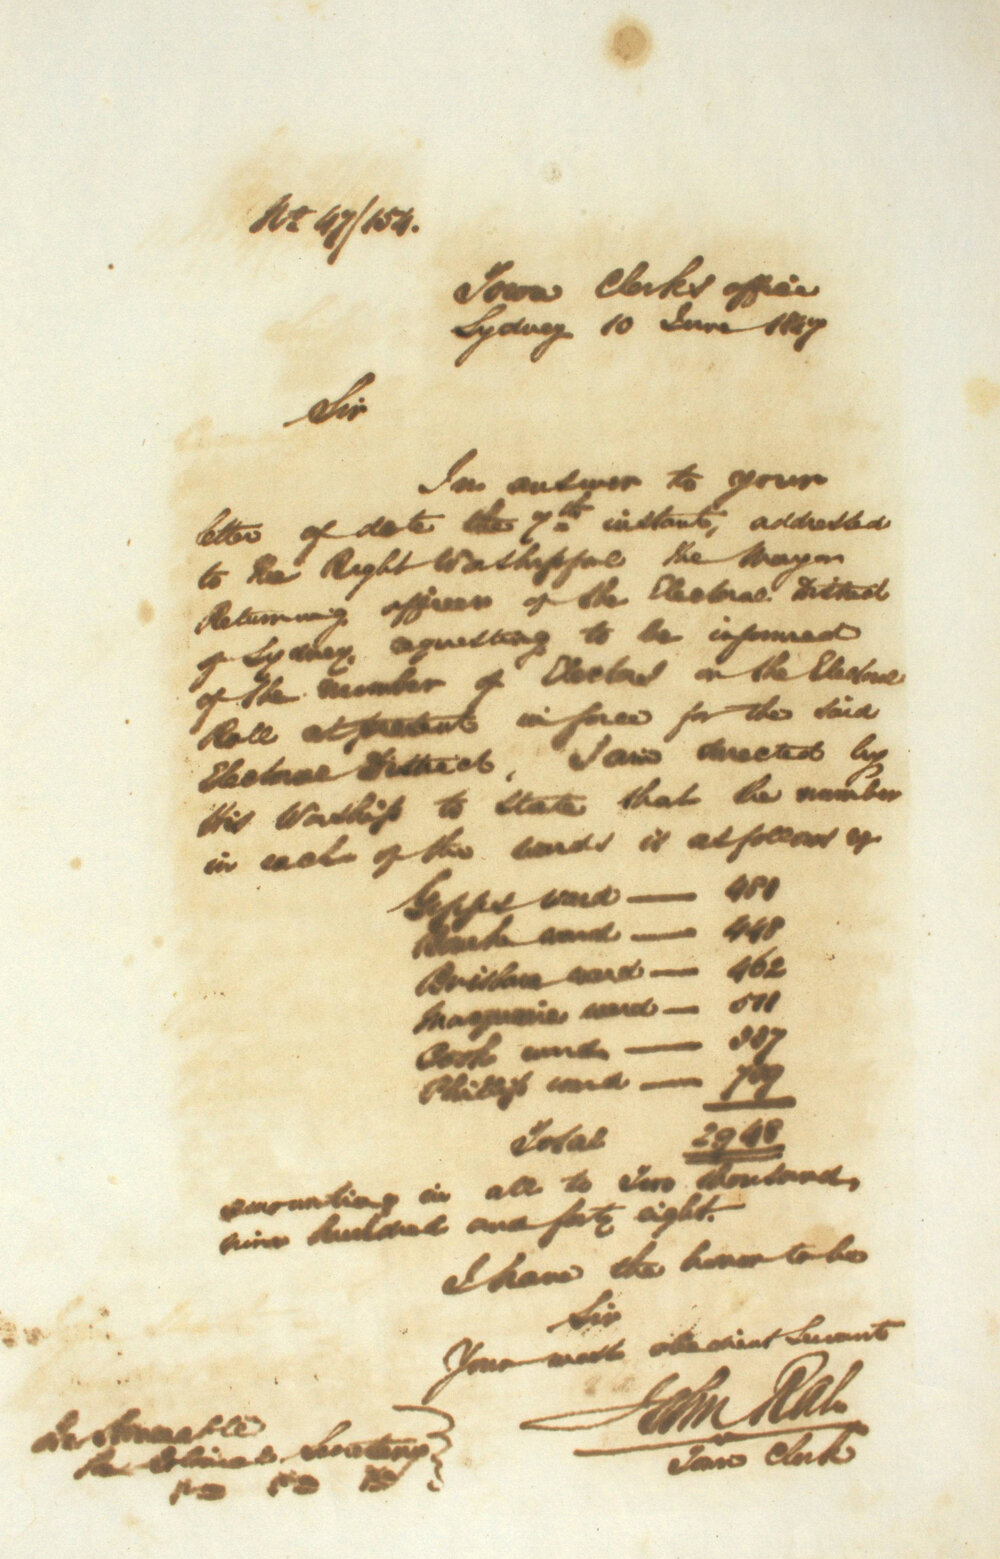 No 47/154.
Town Clerks office
Sydney 10 June 1847
Sir
In answer to your
letter of date the 7th instant, addressed
to the Right Worshipful the Mayor
Returning officer of the Electoral District
of Sydney, requesting to be informed
of the number of Electors on the Electoral
Roll at present in force for the said
Electoral District, I am directed by
His Worship to state that the number
in each of the wards is as follows
Gipps ward — 481
Bourke ward — 448
Brisbane ward — 462
Macquarie ward — 511
Cook ward — 337
Phillip ward — 709
Total 2948
amounting in all to Two thousand,
nine hundred and forty eight.
I have the honor to be
Sir
Your most obedient Servant
John Rae
Town Clerk
The Honorable
the Colonial Secretary